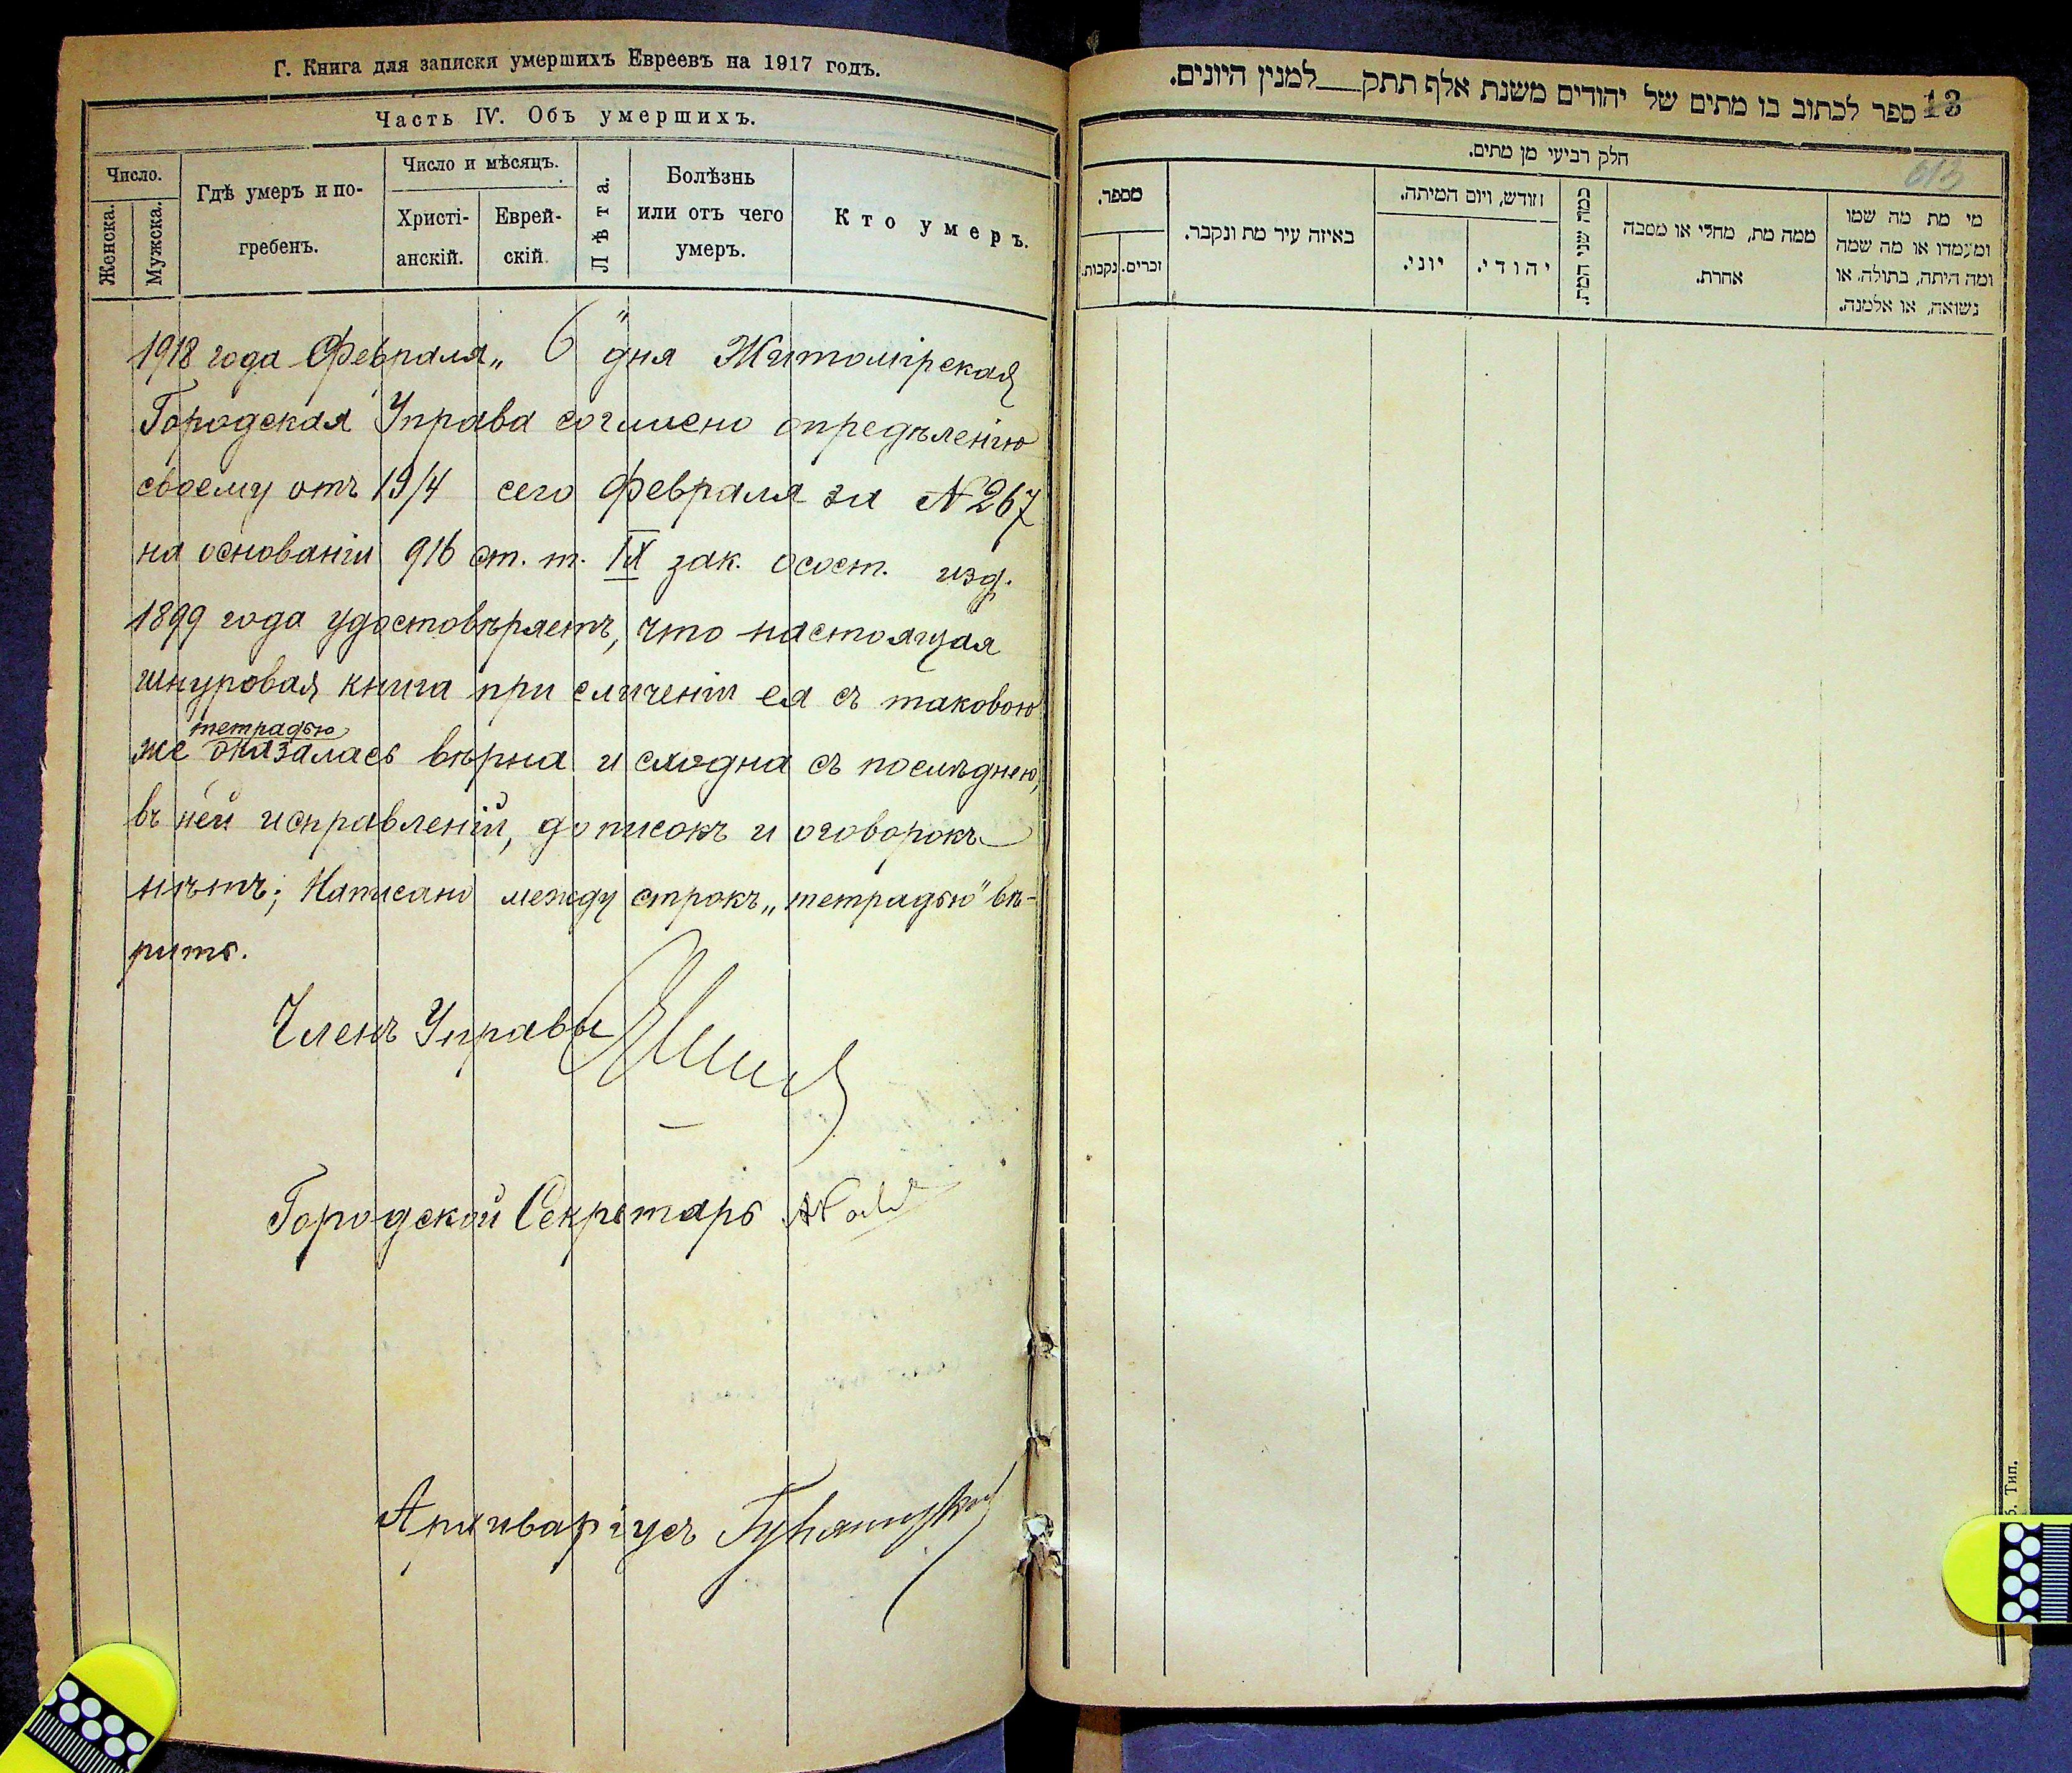 Г. Книга для записки умершихъ Евреевъ на 1917 годъ.
Часть IV. Объ умершихъ.
Число.
Женска.
Мужска.
Гдѣ умеръ и по-
гребенъ.
Число и мѣсяцъ.
Христі-
анскій.
Еврей-
скій.
Лѣта.
Болѣзнь
или отъ чего
умеръ.
Кто умеръ.
1918 года Февраля „ 6 " дня Житомірская
Городская Управа согласно опредѣленію
своему отъ 19/4 сего февраля за № 267
на основаніи 916 ст. т. IX зак. о сост. изд.
1899 года удостовѣряетъ, что настоящая
шнуровая книга при сличеніи ея съ таковою
тетрадью
же оказалась вѣрна и сходна съ послѣднею,
въ ней исправленій, дописокъ и оговорокъ
нѣтъ; Написано между строкъ „тетрадью" вѣ-
рить.
Членъ Управы
Городской Секретарь
Архиваріусъ
13 ספר לכתוב בו מתים של יהודים משנת אלף תתק__למנין היונים.
חלק רביעי מן מתים.
613
מספר.
נקבות.
זכרים.
באיזה עיר מת ונקבר.
חודש, ויום המיתה.
יוני.
יהודי.
כמה שני המת.
ממה מת, מחלי או מסבה
אחרת.
מי מת מה שמו
ומעמדו או מה שמה
ומה היתה, בתולה, או
נשואה, או אלמנה.
Тип.